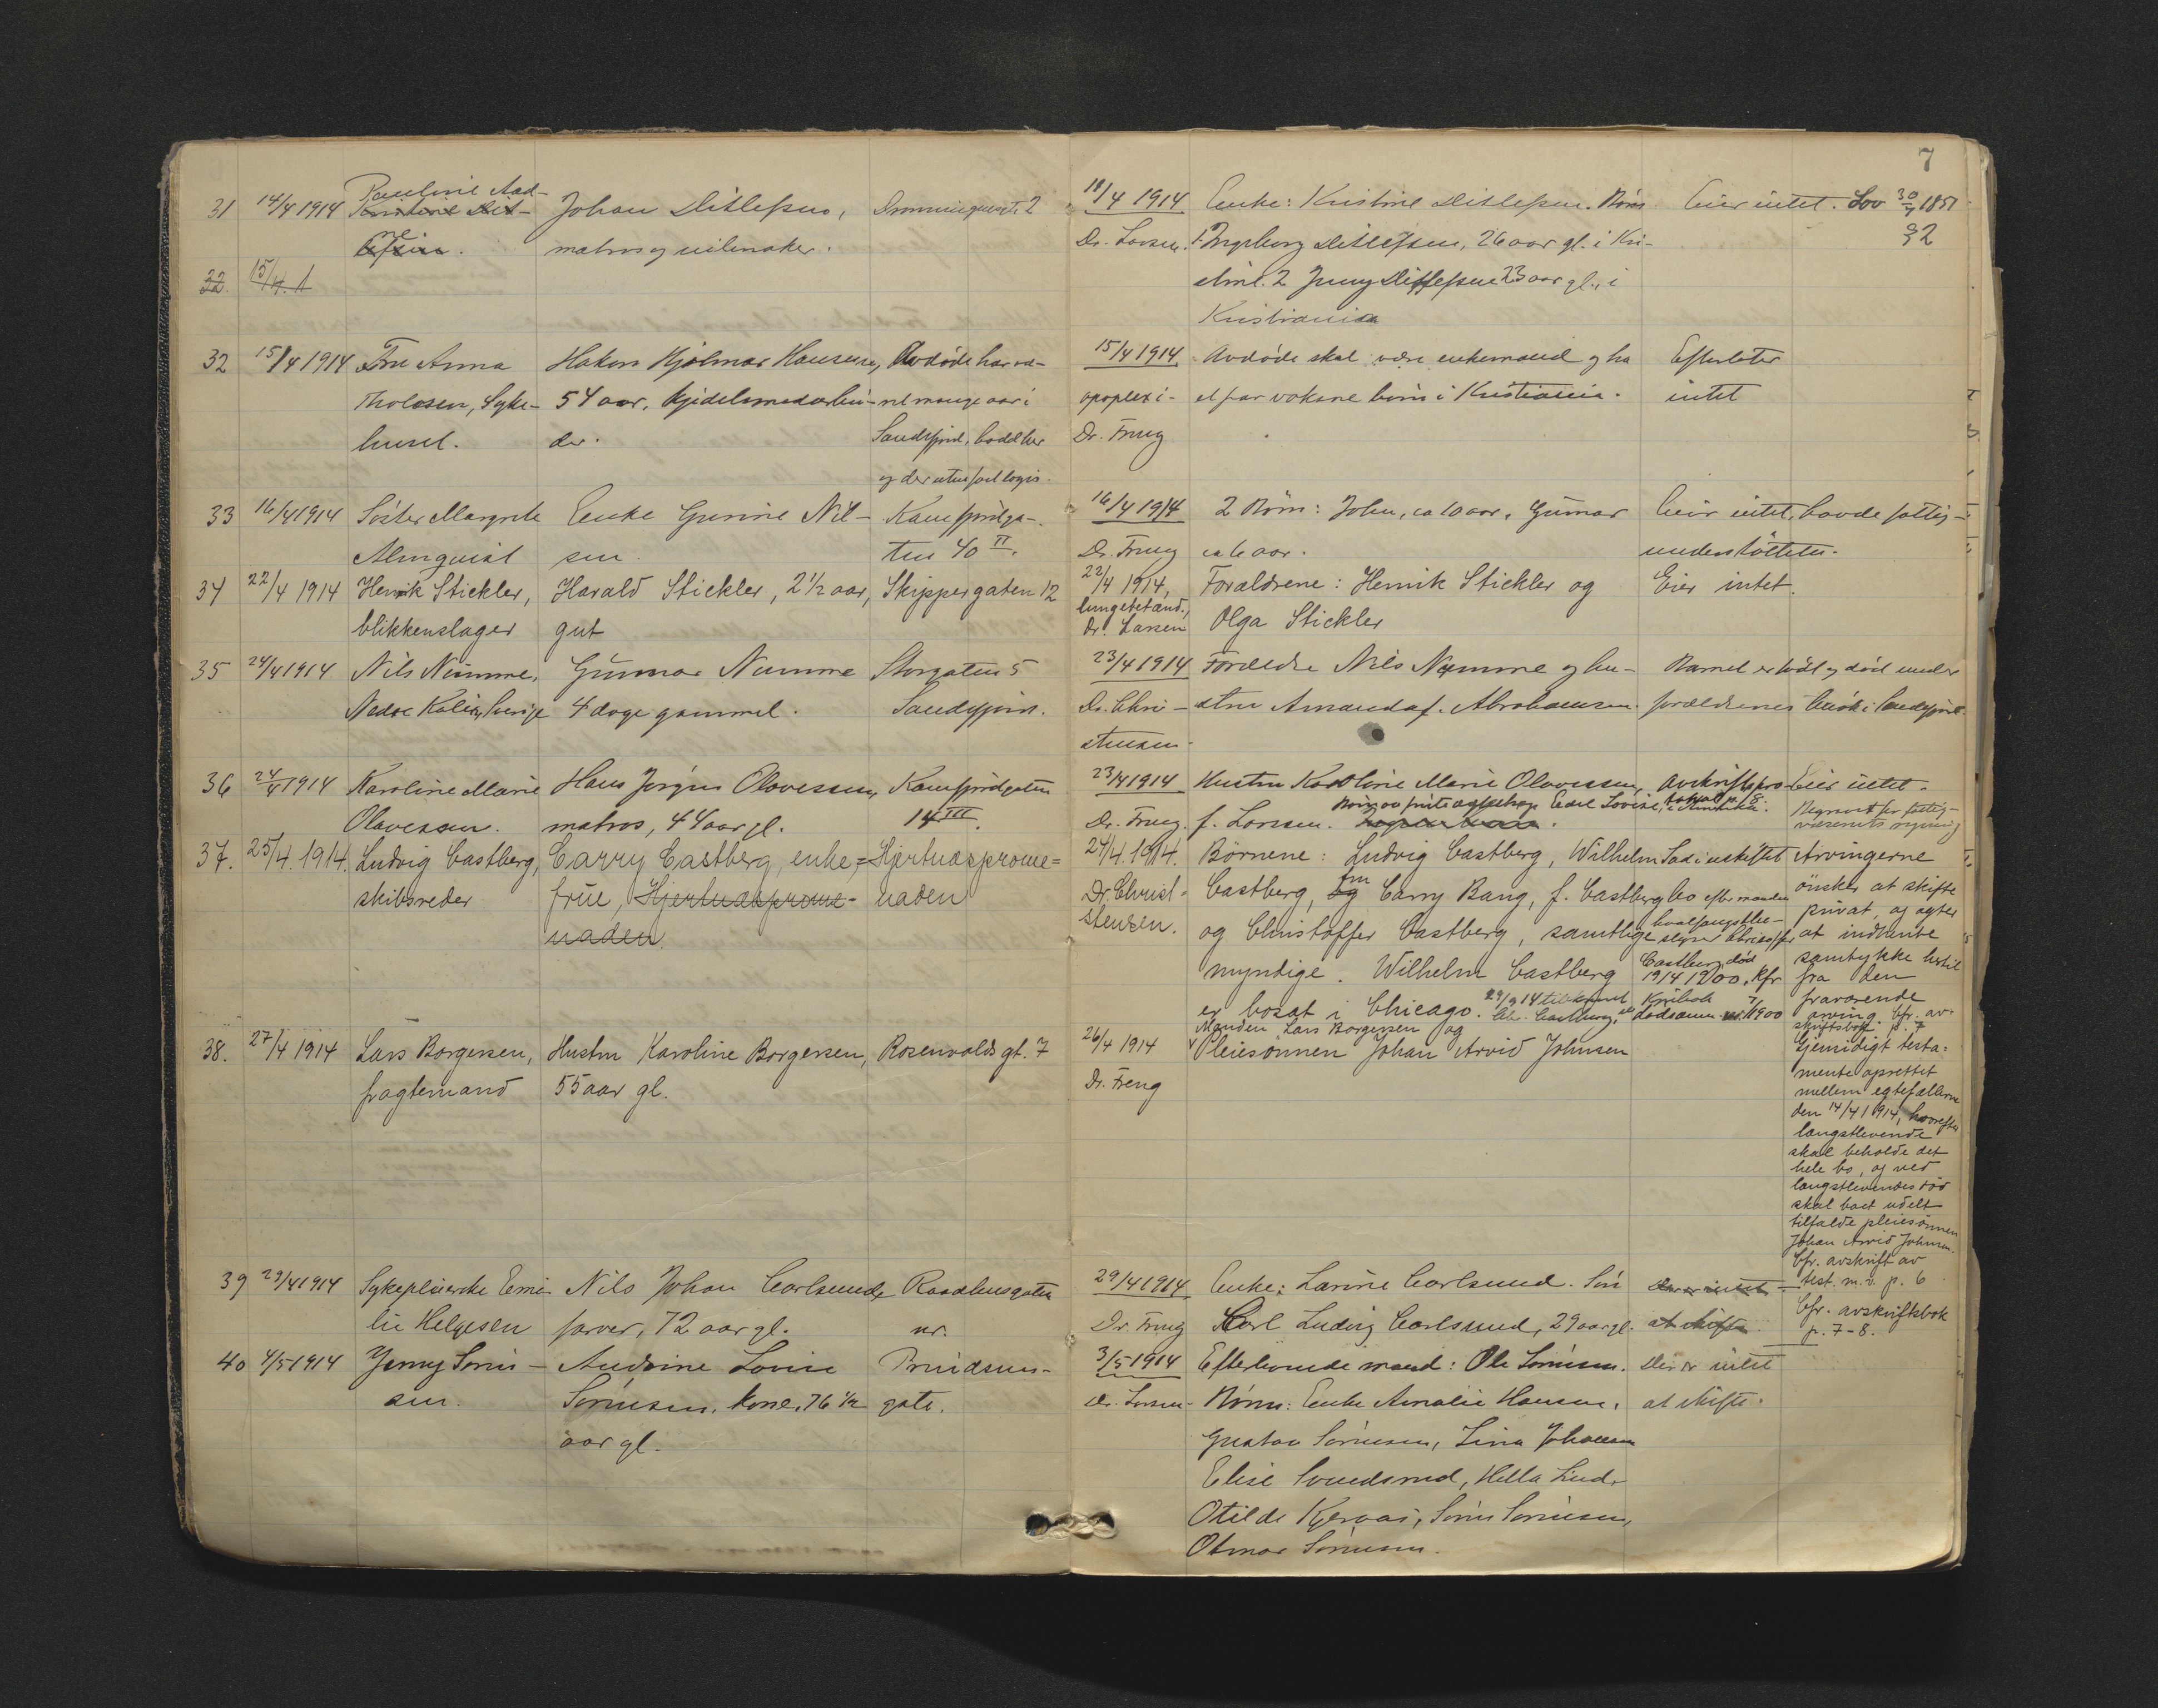 7
31 14/4 1914 Pauline Aad-
Johan Ditlefsen,
Dronningensgt. 2
18/4 1914 Enke: Kristine Ditlefsen. Børn
Eier intet. Lov 30/7 1851
§ 2
ne
matros og seilmaker.
Dr. Larsen. 1. Ingeborg Ditlefsen, 26 aar gl. i Kri-
stiania. 2 Jenny Ditlefsen 23 aar gl., i
Kristiania
32. 15/4. 1
32 15/4 1914 Fru Anna
Tholosen, Syke-
huset.
Hakon Hjalmar Hansen,
54 aar. Kjedelsmedarbei-
der.
Avdøde har væ-
ret mange aar i
Sandefjord, bodd her
og der uten fast logis.
15/4 1914
apoplexi-
Dr. Freng
Avdøde skal være enkemand og ha
et par voksne børn i Kristiania.
Efterlater
intet
33 16/4 1914 Søster Margrete
Almquist
Enke Gurine Nil-
sen
Kamfjordga-
ten 40 II.
16/4 1914
Dr. Freng
2 Børn: John, ca 10 aar, Gunnar
ca 6 aar.
Eier intet, havde fattig-
understøttelse.
34 22/4 1914 Henrik Stickler,
blikkenslager
Harald Stickler, 2 1/2 aar,
gut
Skippergaten 12
22/4 1914,
lungebetænd.,
Dr. Larsen
Forældrene: Henrik Stickler og
Olga Stickler
Eier intet.
35 24/4 1914 Nils Numme,
Sverige
Gunnar Numme
4 dage gammel.
Storgaten 5
Sandefjord.
23/4 1914
Dr. Chri-
stensen
Forældre Nils Numme og hu-
stru Amanda f. Abrahamsen.
Barnet er født og død under
forældrenes besøk i Sandefjord.
36 24/4 1914 Karoline Marie
Olavessen.
Hans Jørgen Olavessen,
matros, 44 aar gl.
Kamfjordgaten
14 III.
23/4 1914
Dr. Freng.
Hustru Karoline Marie Olavessen,
f. Larsen.
Eier intet.
37. 25/4. 1914. Ludvig Castberg,
skibsreder
Carry Castberg, enke=
frue, Hjertnesprome-
naden
Hjertnesprome=
naden
24/4. 1914.
Dr. Christ-
stensen.
Børnene: Ludvig Castberg, Wilhelm
Castberg, og fru Carry Bang, f. Castberg
og Christoffer Castberg, samtlige
myndige. Wilhelm Castberg
er bosat i Chicago.
Sad i uskiftet
bo efter manden
Castberg død
1914
Arvingerne
ønsker at skifte
privat, og agter
at indhente
samtykke hertil
fra den
fraværende
arving. Cfr. av-
skriftsbok p. 7
38. 27/4 1914 Lars Borgersen,
fragtemand
Hustru Karoline Borgersen,
55 aar gl.
Rosenvolds gt. 7
26/4 1914
Dr. Freng
Manden Lars Borgersen og
Pleiesønnen Johan Arvid Johnsen
Gjensidigt testa-
mente oprettet
mellem egtefællerne
den 14/4 1914, hvorefter
længstlevende
skal beholde det
hele bo, og ved
længstlevendes død
skal boet udelt
tilfalde pleiesønnen
Johan Arvid Johnsen.
Cfr. avskrift av
test. m.v. p. 6
Cfr. avskriftsbok
p. 7-8.
39 29/4 1914 Sykepleierske Emi-
lie Helgesen
Nils Johan Carlsund,
farver, 72 aar gl.
Raadhusgaten
nr.
29/4 1914
Dr. Freng
Enke: Larine Carlsund. Søn
Karl Ludvig Carlsund, 29 aar gl.
Der er intet
at skifte.
40 4/5 1914 Jenny Søren-
sen.
Andrine Lovise
Sørensen, kone, 76 1/2
aar gl.
gate.
3/5 1914
Dr. Larsen
Efterlevende mand: Ole Sørensen.
Børn: Enke Amalie Hansen,
Gustav Sørensen, Lina Johansen
Elise Svendsrud, Hella Lind,
Otilde Kjeraas, Søren Sørensen,
Otmar Sørensen.
Der er intet
at skifte.